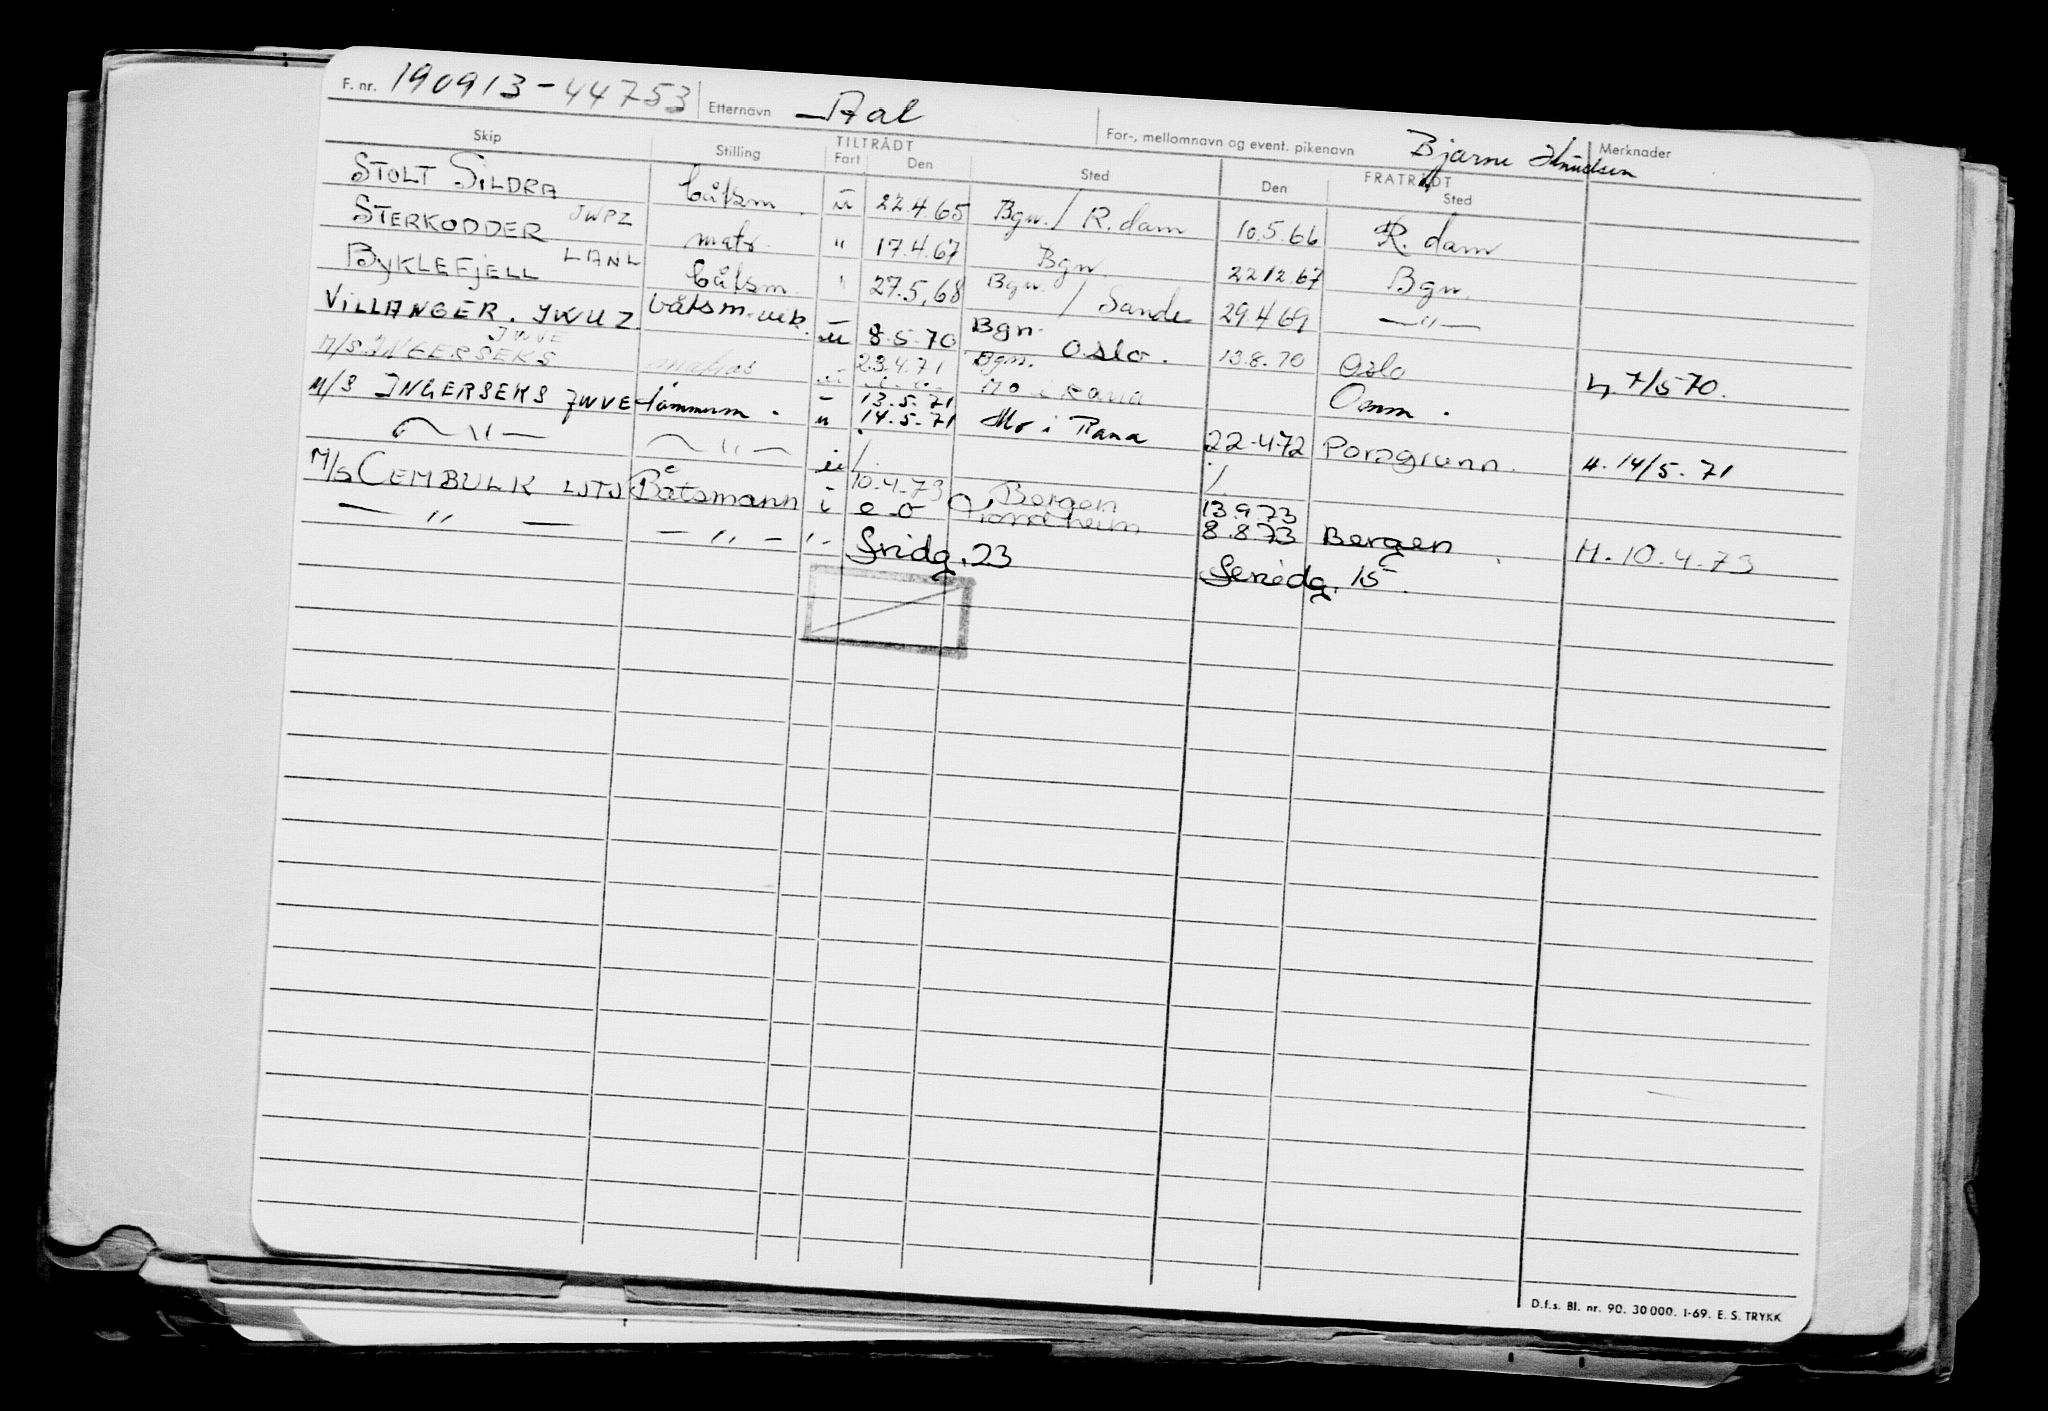 F. nr. 190913-44753 Etternavn Aal For-, mellomnavn og event. pikenavn Bjarne Knudsen
Skip Stilling TILTRÅDT Fart Den Sted FRATRÅDT Den Sted Merknader
STOLT SILDRA båtsm. u 22.4.65 Bgn. / R.dam 10.5.66 R.dam
STERKODDER JWPZ matr. " 17.4.67 Bgn. 22.12.67 Bgn.
BYKLEFJELL LANL båtsm. " 27.5.68 Bgn. / Sande 29.4.69 —"—
VILLANGER. JWUZ båtsm. u 8.5.70 Bgn. Oslo. 13.8.70 Oslo 7/5 70.
M/S. INGERSEKS JWVE matros 23.4.71 Bgn. Mo i Rana
M/S INGERSEKS JWVE tømmerm. 13.5.71 Omm.
—"— —"— u 14.5.71 Mo i Rana 22-4-72 Porsgrunn. H. 14/5.71
M/S CEMBULK LJTJ Båtsmann u 10.4.73 Bergen 13.9.73
— " — — " — i Trondheim 8.8.73 Bergen H. 10.4.73
23 15.
D.f.s. Bl. nr. 90. 30 000. 1-69. E. S. TRYKK